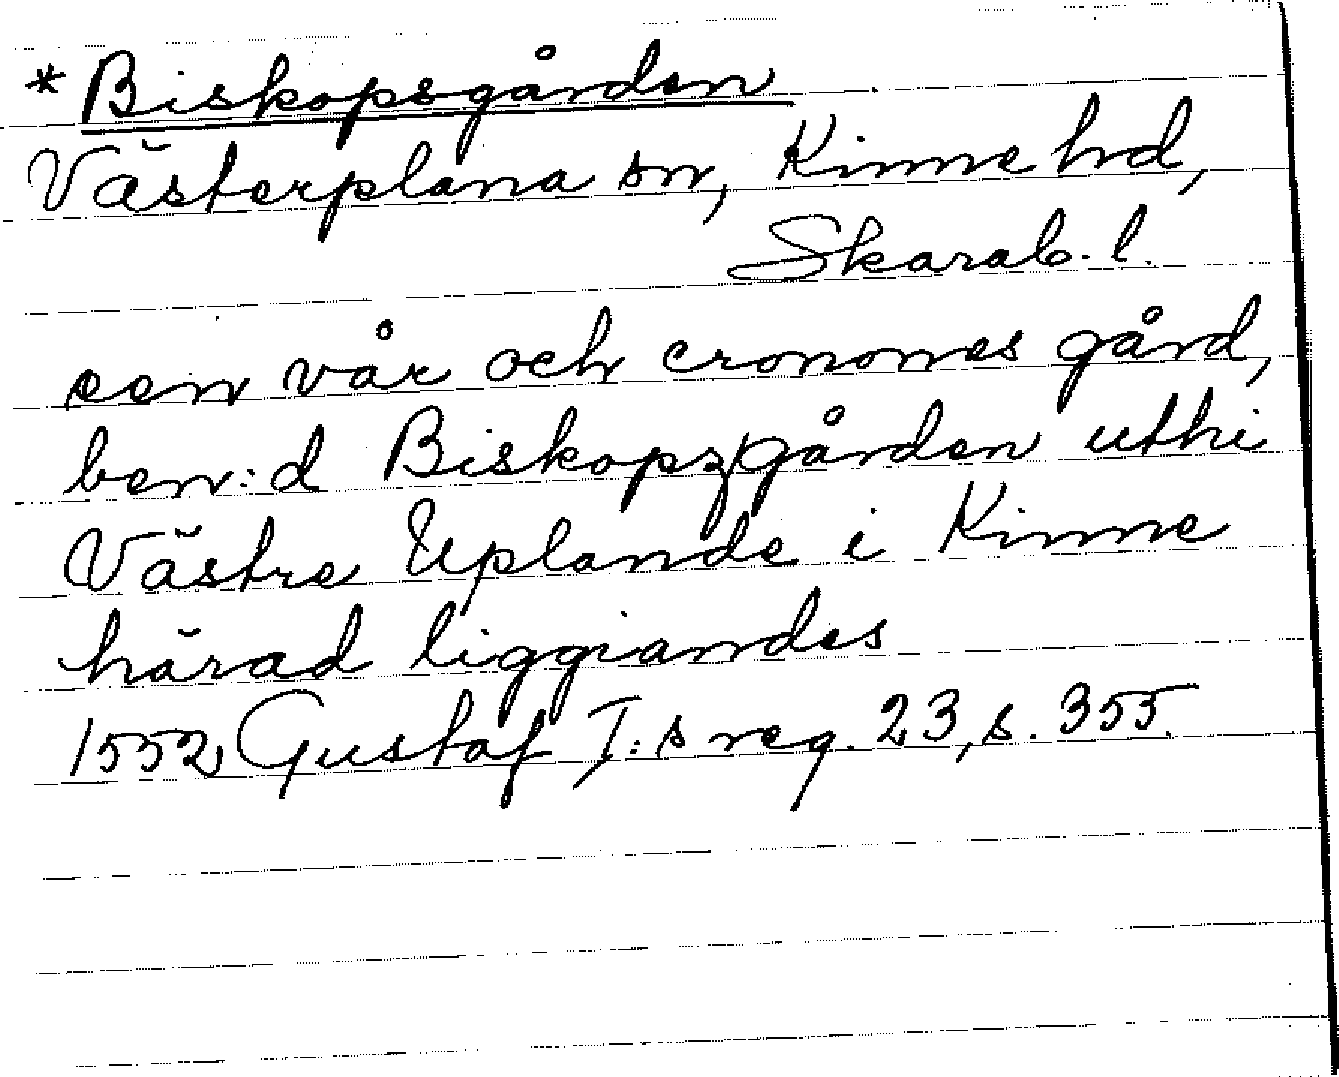 * Biskopsgården
Västerplana sn, Kinne hd,
Skarab. l.
een vår och cronones gård,
ben:d Biskopzgården uthi
Västre Uplande i Kinne
härad liggiandes
1552 Gustaf I:s reg. 23, s. 355.